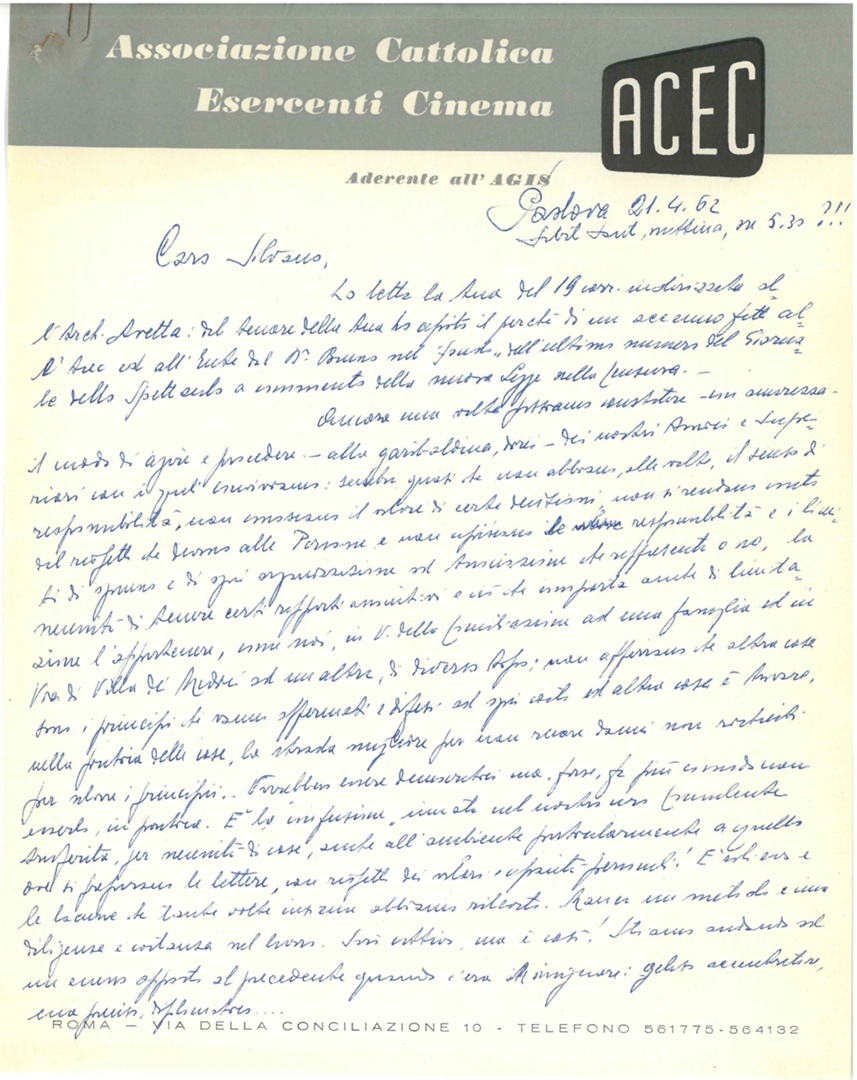 Associazione Cattolica
Esercenti Cinema
ACEC
Aderente all'AGIS
Padova 21.4.62
mattina, ore 5.30 ?!!
Caro Silvano,
Ho letto la tua del 19 corr. indirizzata al
l'Arch. Aretta: del tenore della tua ho capito il perché di un accenno fatto al
l'Acec ed all'Ente del Dr. Bruno nel dell'ultimo numero del Giorna-
le dello Spettacolo a commento della nuova Legge sulla Censura. -
Ancora una volta possiamo constatare - con amarezza -
il modo di agire e procedere - alla garibaldina, direi - dei nostri Amici e Supe-
riori con i quali conviviamo: sembra quasi che non abbiano, alle volte, il senso di
responsabilità, non conoscano il valore di certe decisioni, non si rendano conto
del rispetto che devono alle Persone e non capiscano le responsabilità e i limi-
ti di ognuno e di ogni organizzazione od Associazione che rappresenta o no, la
necessità di tenere certi rapporti associativi e ciò che comporta anche di limita-
zione l'appartenere, come noi, in V. della Conciliazione ad una famiglia ed in
Via di Villa de' Medici ad un'altra, di diverso tipo; non capiscano che altra cosa
sono i principi che vanno affermati e difesi ad ogni costo ed altra cosa è trovare,
nella pratica delle cose, la strada migliore per non recare danni non richiesti
per salvare i principi. Vorrebbero essere democratici ma, forse, fa più comodo non
esserlo, in pratica. E' la confusione, innata nel nostro Consulente
trasferita, per necessità di cose, anche all'ambiente particolarmente a quello
ove si preparano le lettere, con rispetto dei valori personali! E
le lacune che tante volte insieme abbiamo rilevato. Manca un metodo e una
diligenza e costanza nel lavoro. Sarò cattivo, ma è così! Stiamo andando ad
un opposto al precedente quando c'era Monsignore: geloso accentratore,
ma preciso,
ROMA - VIA DELLA CONCILIAZIONE 10 - TELEFONO 561775-564132